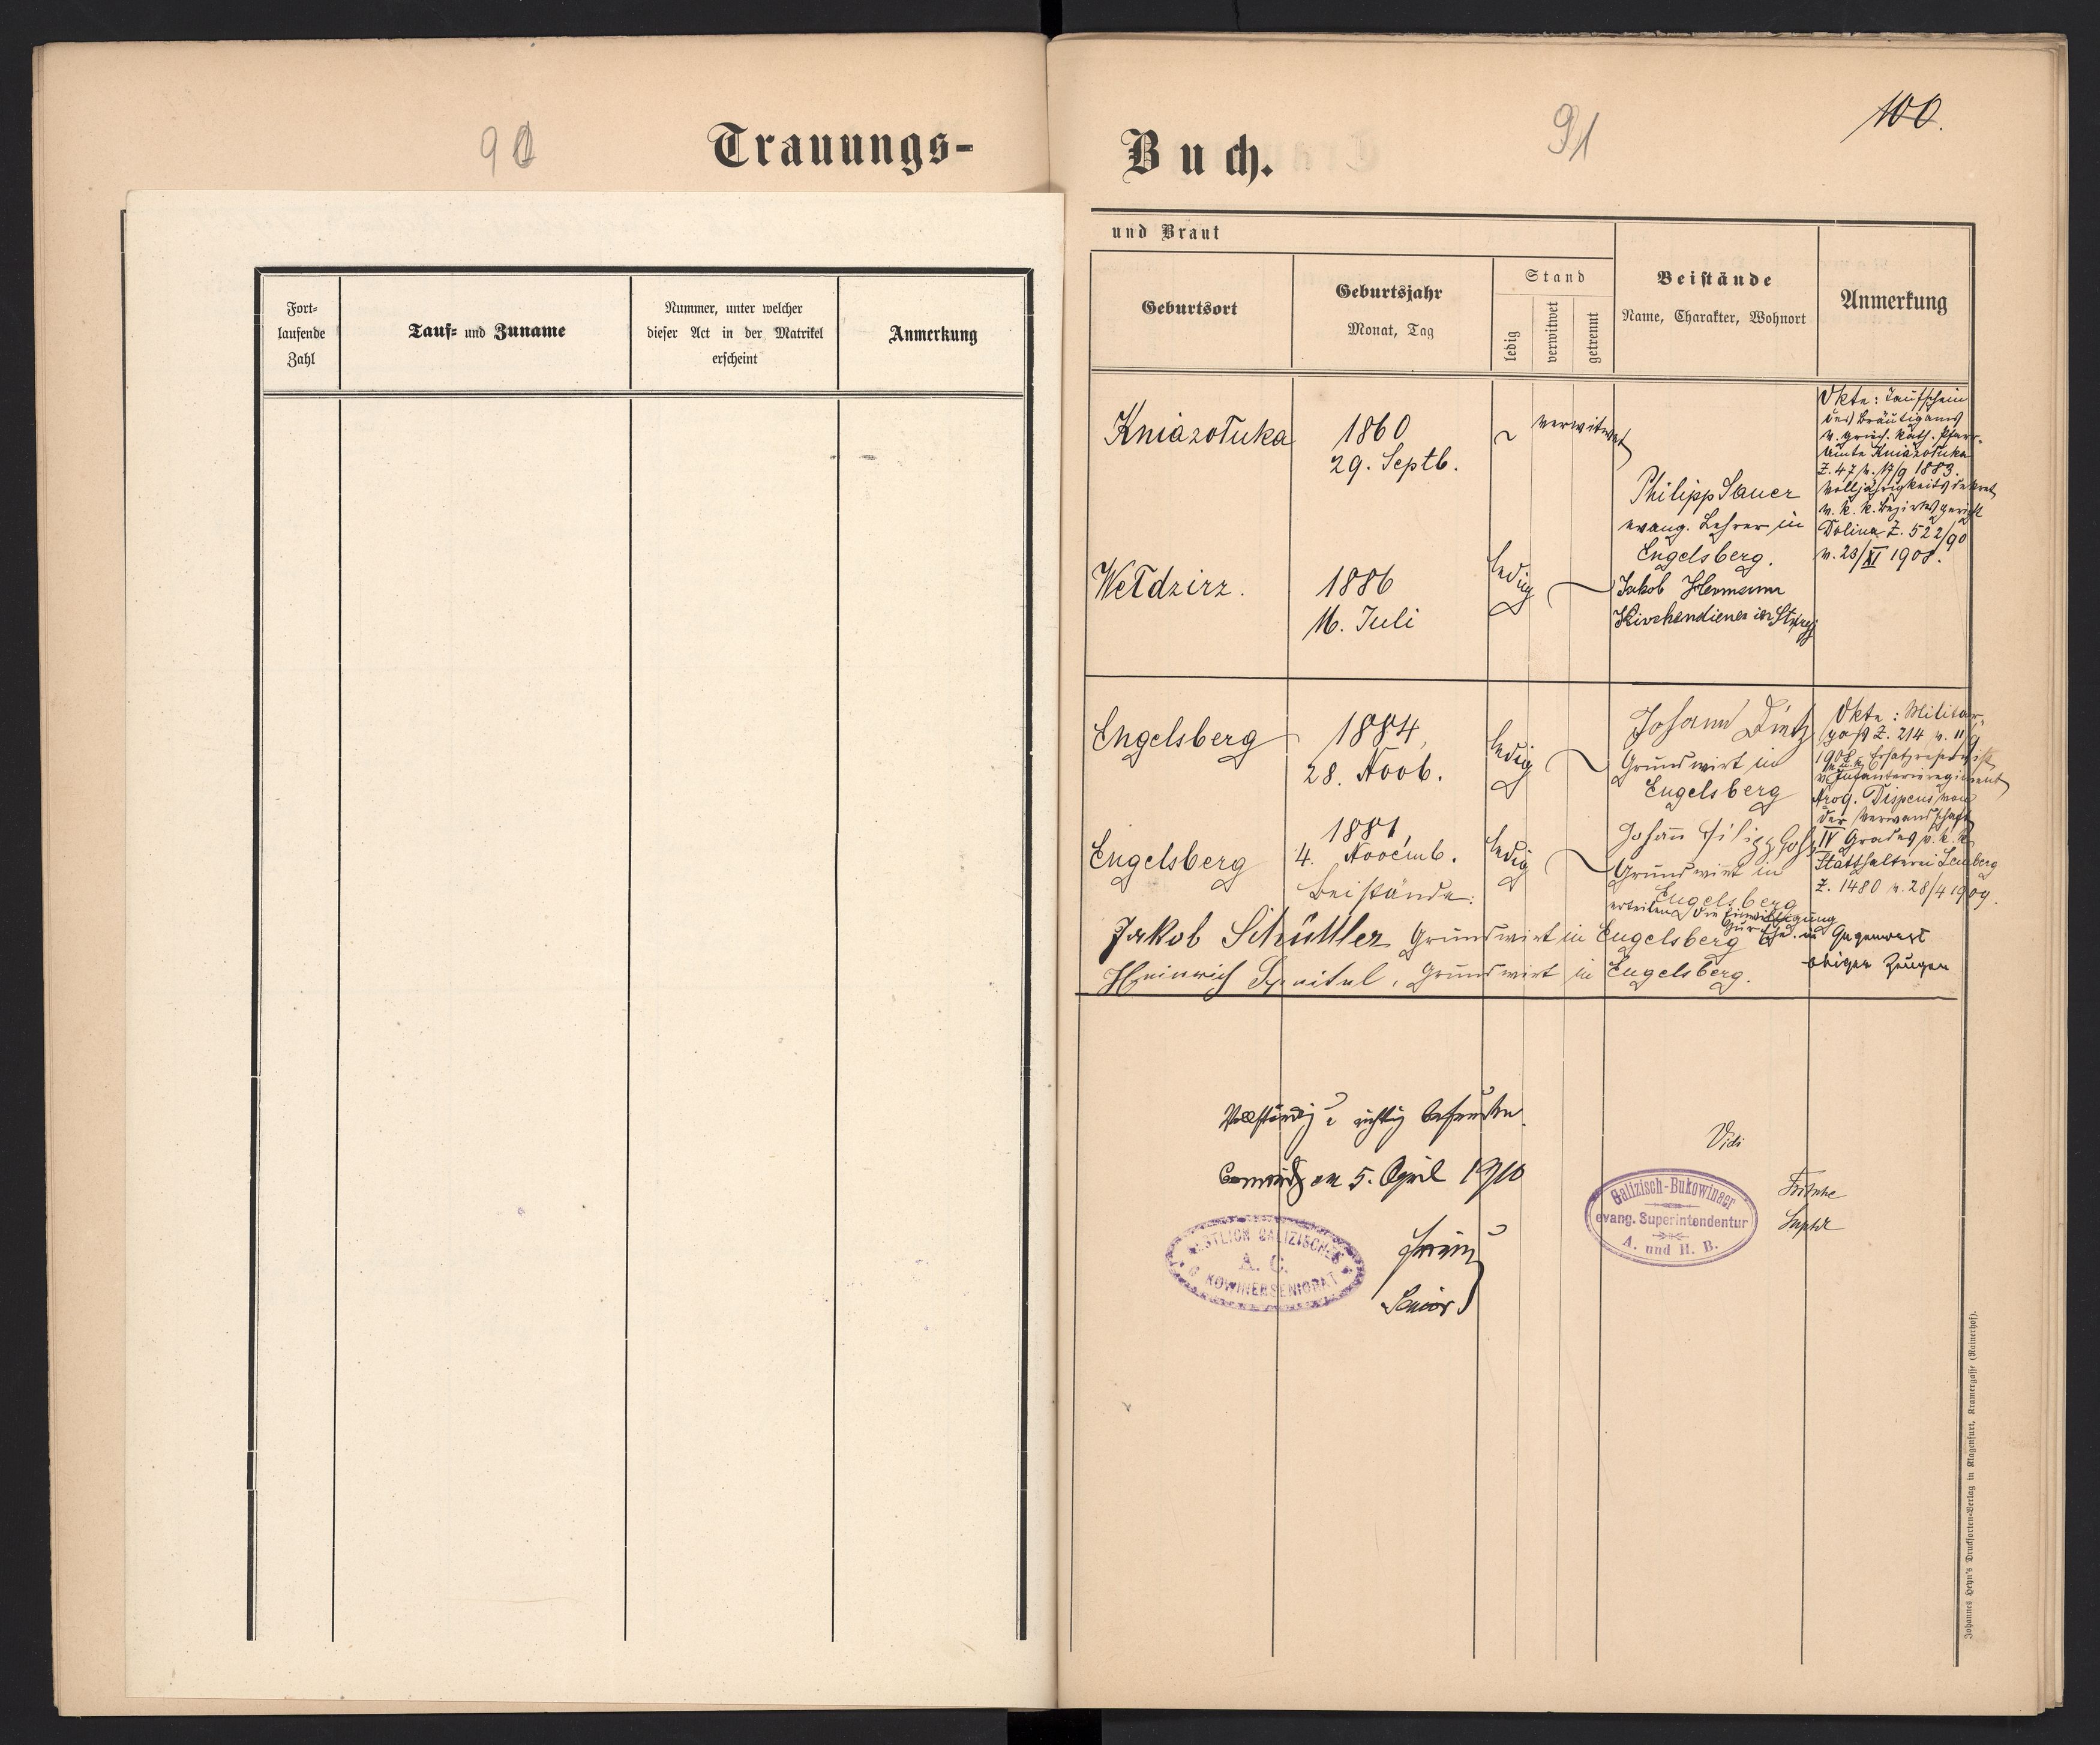 90
Trauungs-
Fort-
laufende
Zahl
Tauf- und Zuname
Nummer, unter welcher
dieser Act in der Matrikel
erscheint
Anmerkung
Buch.
91
100.
und Braut
Geburtsort
Geburtsjahr
Monat, Tag
Stand
ledig
verwitwet
getrennt
Beistände
Name, Charakter, Wohnort
Anmerkung
Kniazołuka
1860
29. Septb.
verwitwet
Philipp Sauer
evang. Lehrer in
Engelsberg.
Akte: Taufschein
des Bräutigams
v. griech. kath. Pfarr-
amte Kniazołuka
Z. 47 v. 17/9 1883.
Volljährigkeitsdekret
v. k. k. Bezirksgericht
Dolina Z. 522/90
v. 23/XI 1908.
Wełdzirz.
1886
16. Juli
ledig
Jakob Hermann
Kirchendiener in Stryj
Engelsberg
1884,
28. Novb.
ledig
Johann Dietz
Grundwirt in
Engelsberg
Akte: Militär-
paß Z. 214 v. 11/9
1908 Ersatzreservist
Infanterieregiment
Dispens von
der Verwandschaft
IV Grades v. k. k.
Statthalterei Lemberg
Z. 1480 v. 28/4 1909.
Engelsberg
1881,
4. Novemb.
ledig
Johann Filipp
Grundwirt in
Engelsberg
Beistände:
erteilen die Einwilligung
zur Ehe in Gegenwart
obiger Zeugen
Jakob Schüttler Grundwirt in Engelsberg
Heinrich Speitel, Grundwirt in Engelsberg.
Vollständig u richtig befunden.
am 5. April 1910
Senior
Vidi
Fritsche
Suptdt
ÖSTLICH GALIZISCHES
A. C.
BUKOWINER SENIORAT
Galizisch-Bukowineer
evang. Superintendentur
A. und H. B.
Johannes Heyn's Drucksorten-Verlag in Klagenfurt, Kramergasse (Rainerhof).